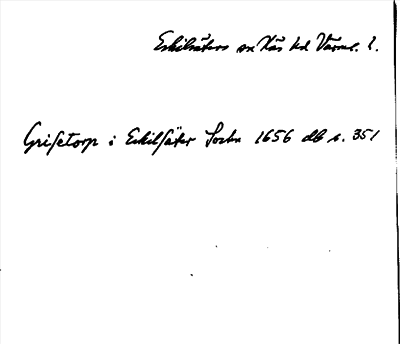 Eskilsäters sn Näs hd Värml. l.
Grisetorp i Eskilsäter Sochn 1656 db s. 351